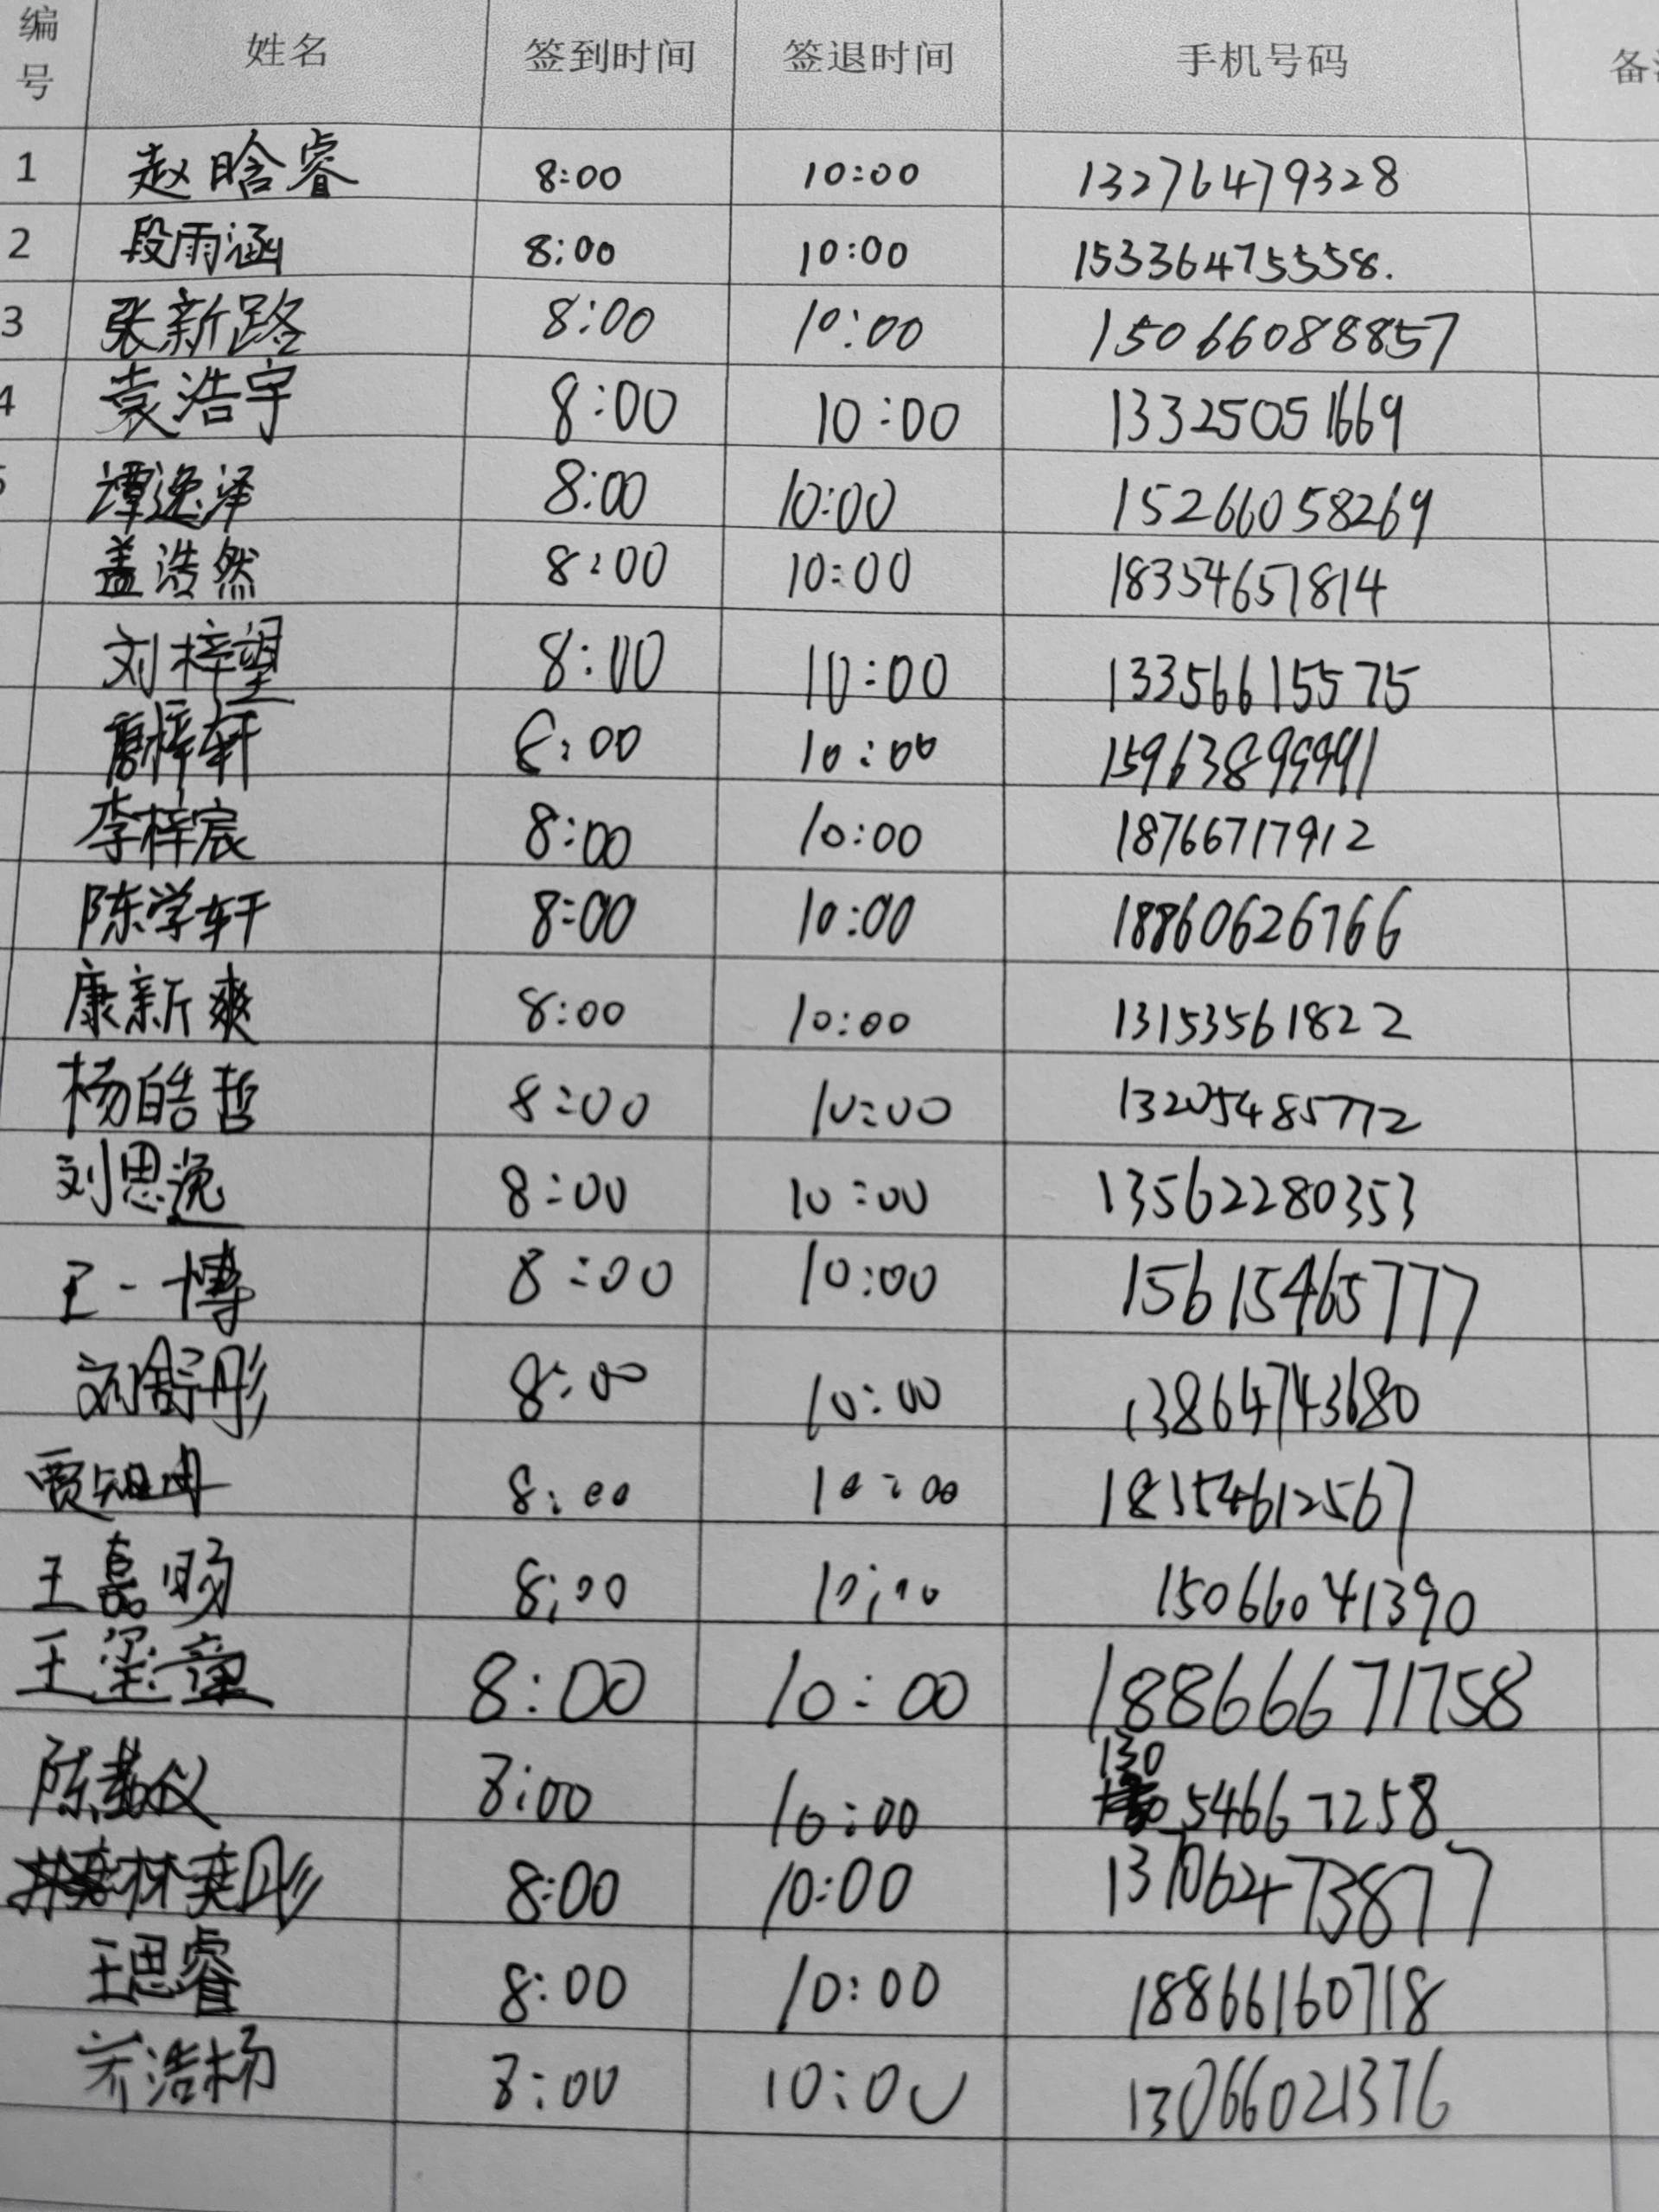 编号 姓名 签到时间 签退时间 手机号码 备
1 赵晗睿 8:00 10:00 13276479328
2 段雨涵 8:00 10:00 153364755558.
3 张新路 8:00 10:00 15066088857
4 袁浩宇 8:00 10:00 13325051669
5 谭逸泽 8:00 10:00 15266058269
盖浩然 8:00 10:00 18354651814
刘梓望 8:00 10:00 13356615575
唐梓轩 8:00 10:00
李梓宸 8:00 10:00 18766717912
陈学轩 8:00 10:00 18860626766
康新爽 8:00 10:00 13153561822
杨皓哲 8:00 10:00 13205485772
刘思逸 8:00 10:00 13562280353
王一博 8:00 10:00 15615465777
刘舒彤 8:00 10:00 13864743680
贾 8:00 10:00 18354612567
王嘉旸 8:00 10:00 15066041390
王 童 8:00 10:00 18866671758
陈 仪 8:00 10:00 130 54667258
林奕彤 8:00 10:00 13706473877
王思睿 8:00 10:00 18866160718
乔浩杨 8:00 10:00 13066021376